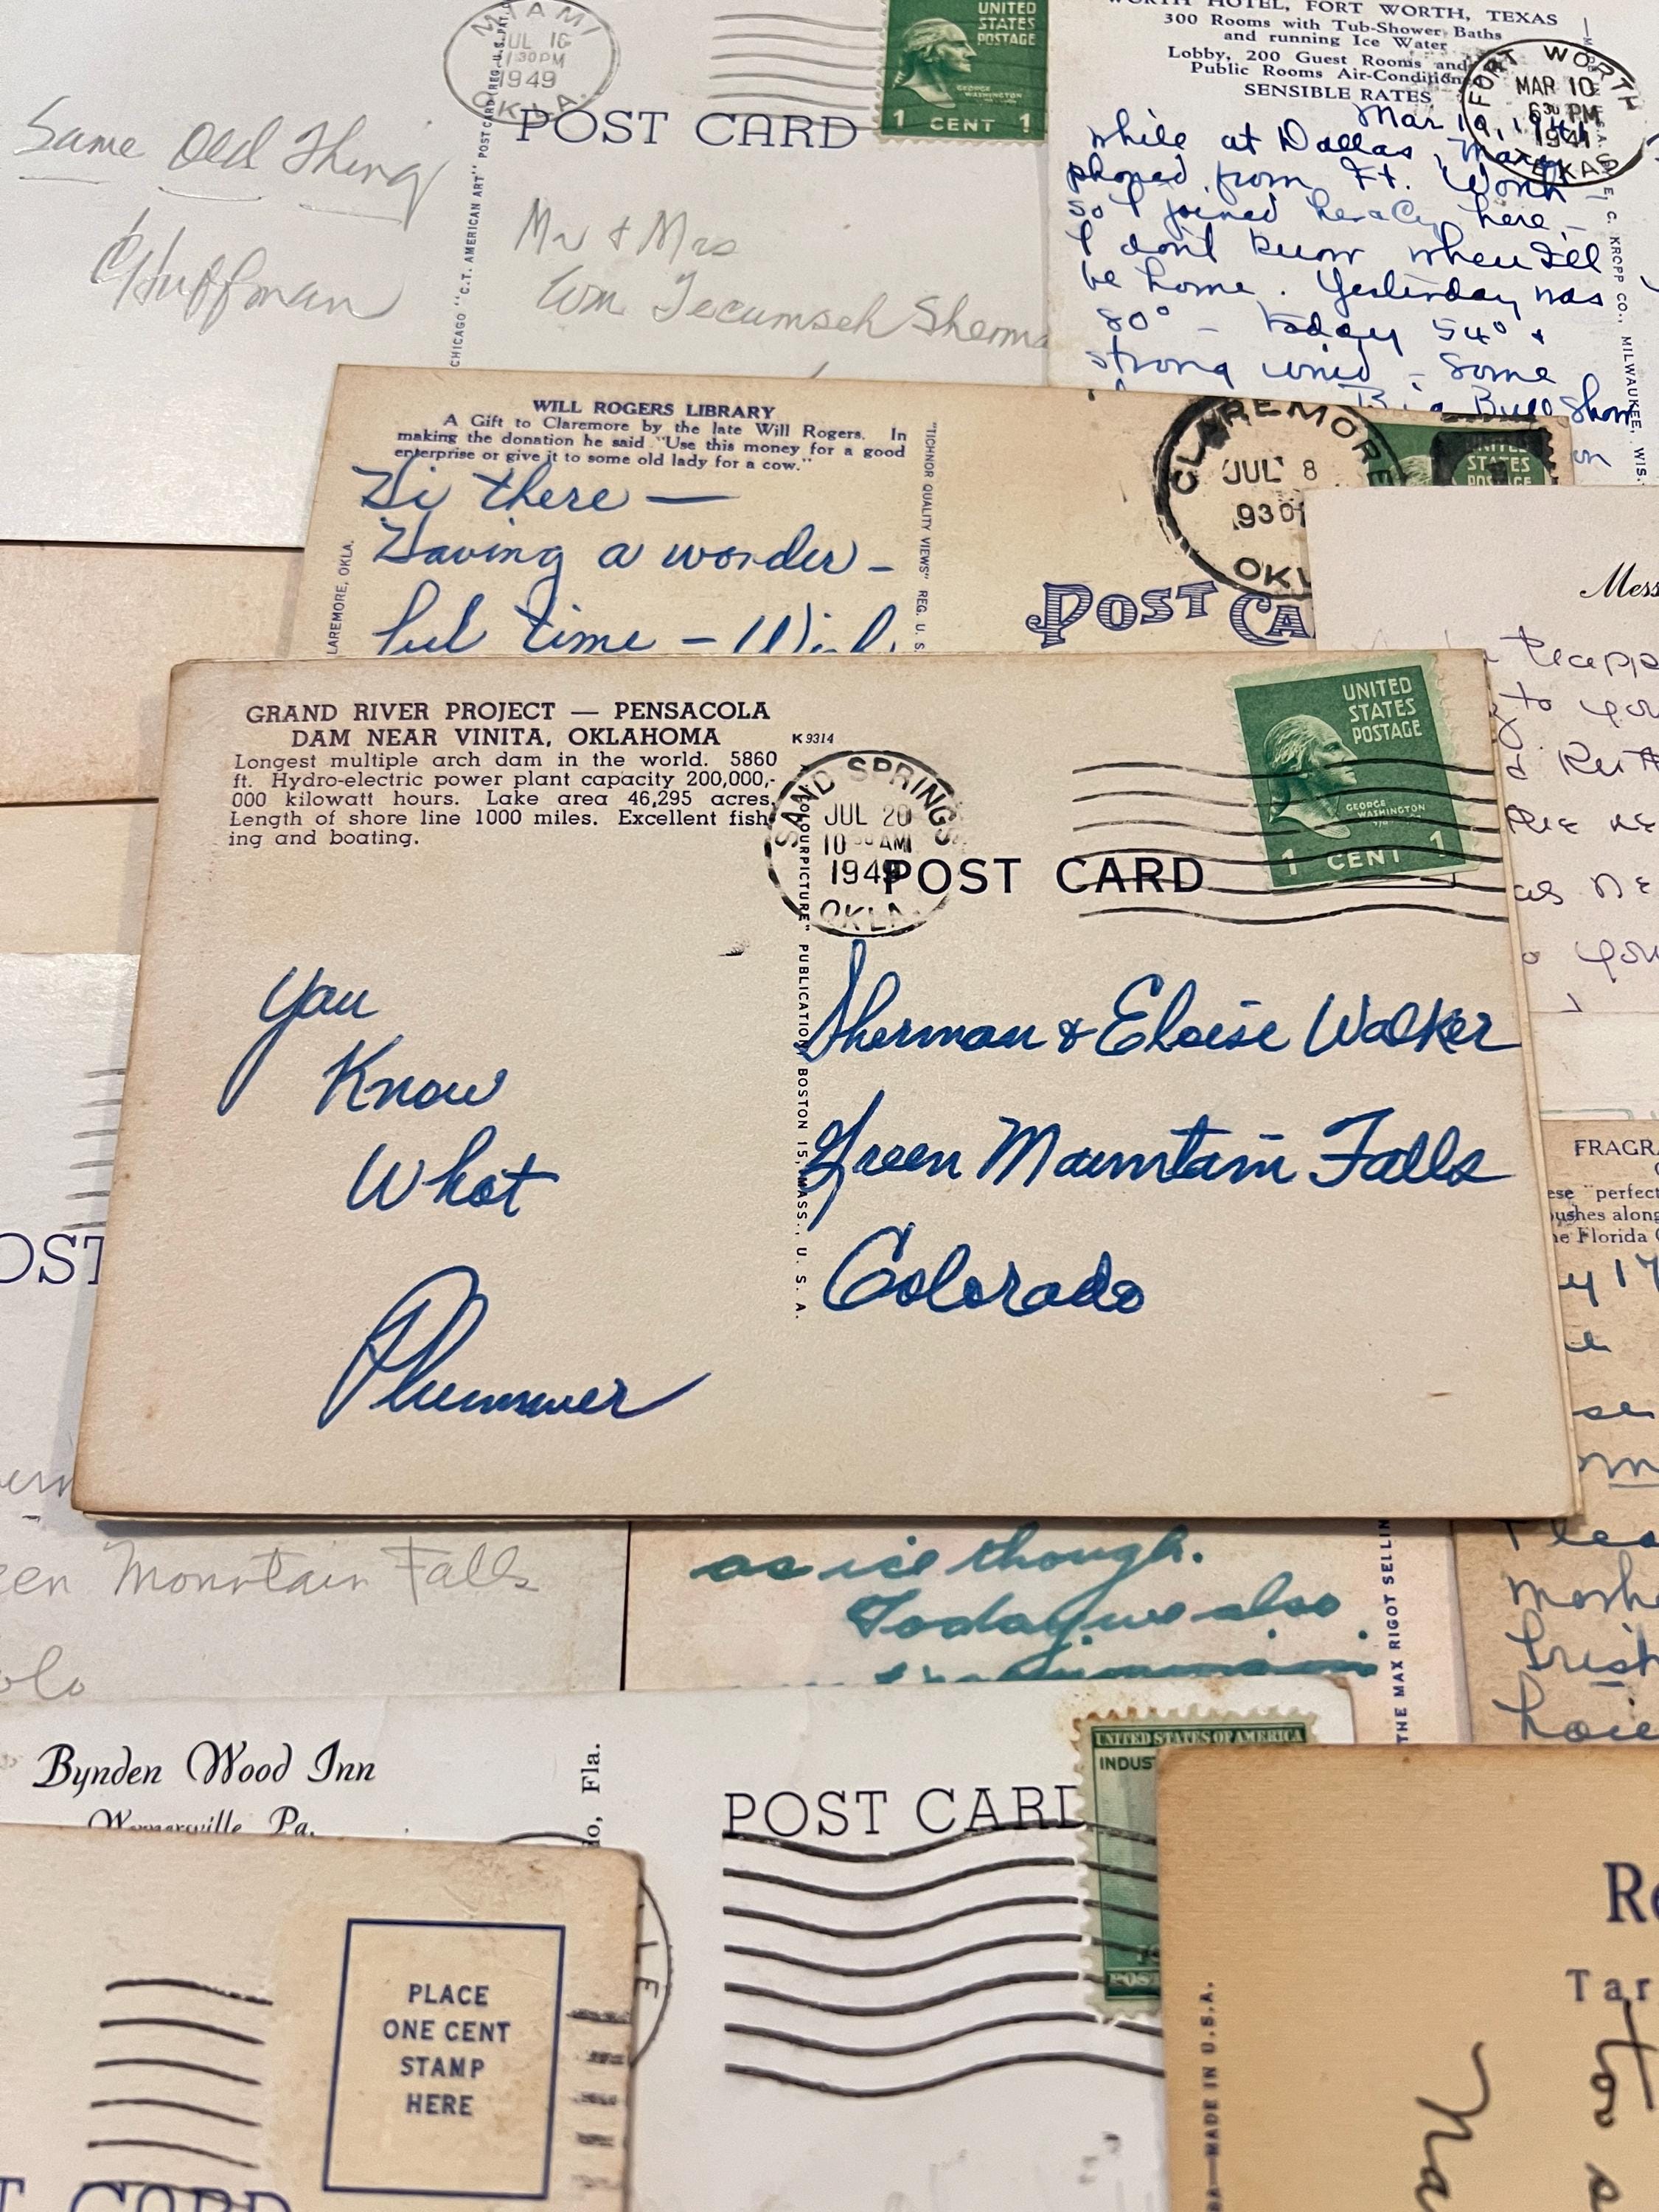 MIAMI
JUL 16
1 30 PM
1949
OKLA.
UNITED
STATES
POSTAGE
GEORGE
WASHINGTON
1 CENT 1
POST CARD
Same Old Thing
CHuffman
CHICAGO "C.T. AMERICAN ART" POST CARD (REG. U.S. PAT.
Mr & Mrs
Wm Tecumseh Sherma
WORTH HOTEL, FORT WORTH, TEXAS
300 Rooms with Tub-Shower Baths
and running Ice Water
Lobby, 200 Guest Rooms and
Public Rooms Air-Condition
SENSIBLE RATES
FORT WORTH
MAR 10
6 30 PM
1941
TEXAS
Mar 10, 1941
while at Dallas, Mary
phoned from Ft. Worth
so I joined her here -
I don't know when I'll
be home. Yesterday was
80° - today 54° &
strong wind - Some
Show
on
C. KROPP CO., MILWAUKEE, WIS.
WILL ROGERS LIBRARY
A Gift to Claremore by the late Will Rogers. In
making the donation he said "Use this money for a good
enterprise or give it to some old lady for a cow."
LAREMORE, OKLA.
"TICHNOR QUALITY VIEWS" REG. U. S.
Hi there —
Having a wonder-
ful time -
CLAREMORE
JUL 8
930
OKL
UNITED
STATES
POSTAGE
POST CA
Mess
to you
GRAND RIVER PROJECT — PENSACOLA
DAM NEAR VINITA, OKLAHOMA
K 9314
Longest multiple arch dam in the world. 5860
ft. Hydro-electric power plant capacity 200,000,-
000 kilowatt hours. Lake area 46,295 acres.
Length of shore line 1000 miles. Excellent fish-
ing and boating.
SAND SPRINGS
JUL 20
10 30 AM
1949
OKLA.
UNITED
STATES
POSTAGE
GEORGE
WASHINGTON
1 CENT 1
POST CARD
"COLOURPICTURE" PUBLICATION, BOSTON 15, MASS., U. S. A.
You
Know
What
Plummer
Sherman & Eloise Walker
Green Mountain Falls
Colorado
FRAGRA
ese "perfect
bushes along
he Florida
OST
een Mountain Falls
olo
as ice though.
Today we also
THE MAX RIGOT SELLIN
Bynden Wood Inn
Wernersville, Pa.
do, Fla.
POST CARD
UNITED STATES OF AMERICA
INDUS
PLACE
ONE CENT
STAMP
HERE
T CARD
RA—MADE IN U.S.A.
Re
Tar
to